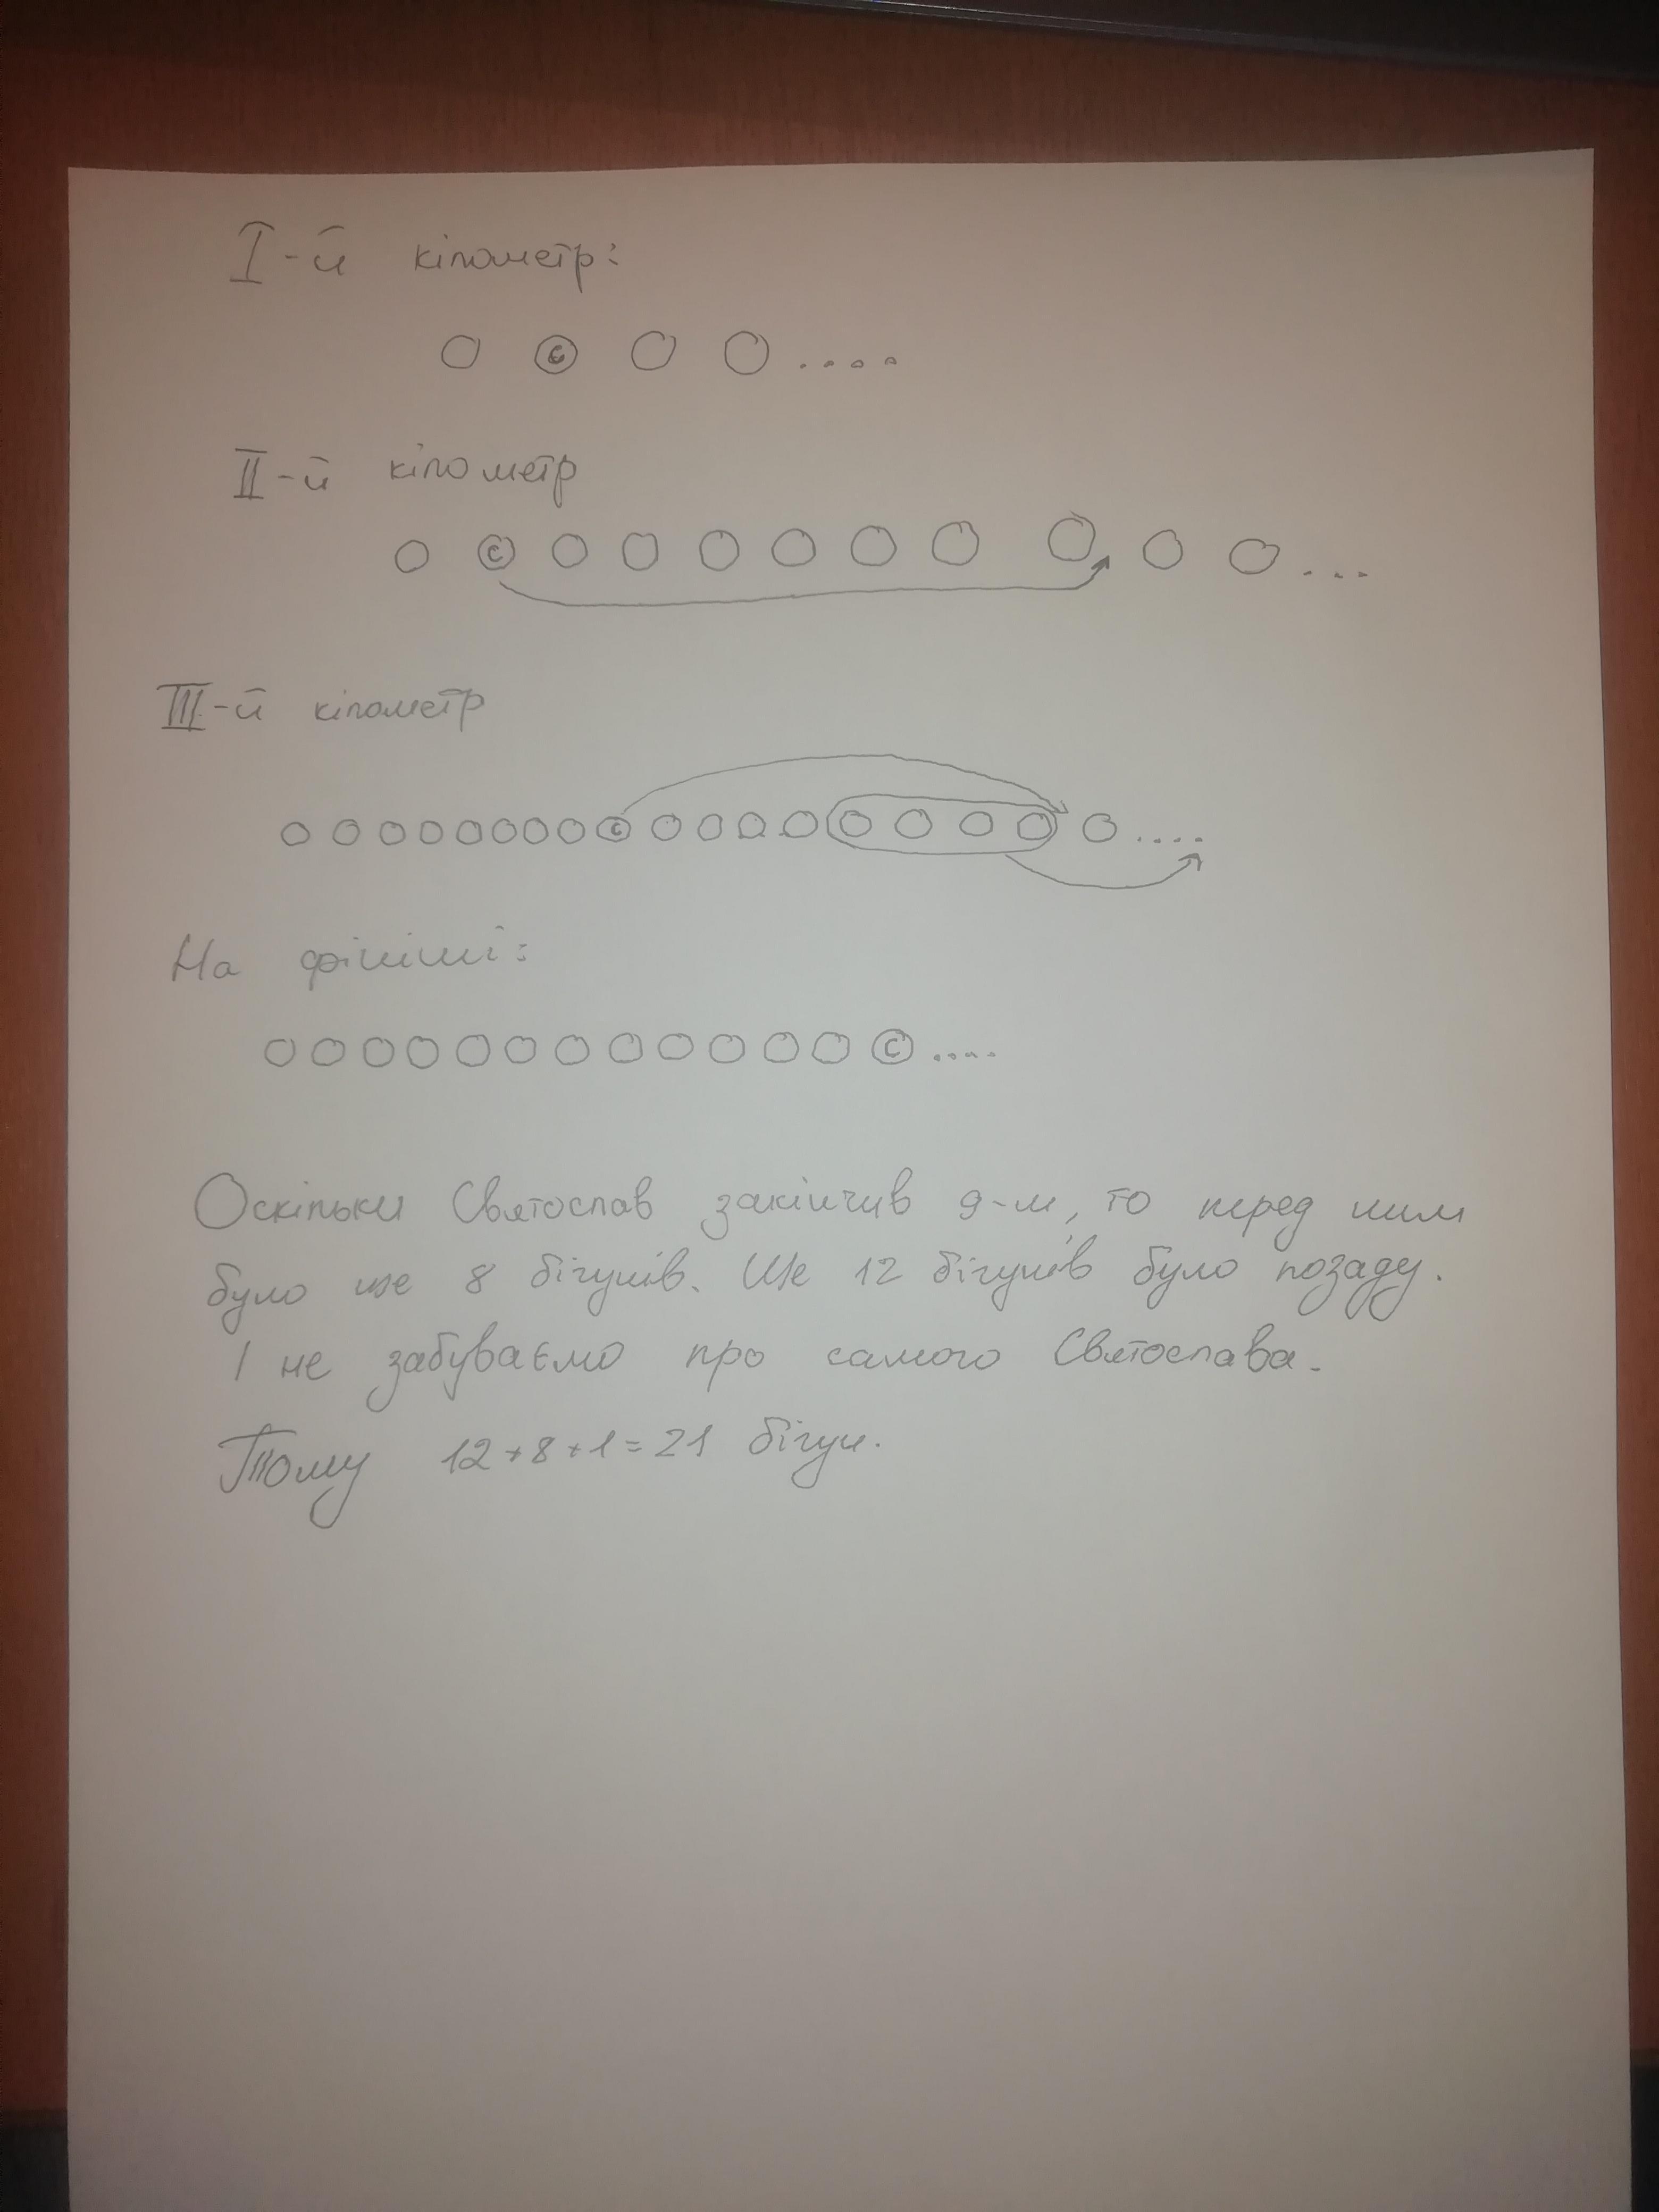 I-й кілометр:
С
....
II-й кілометр
С
...
III-й кілометр
С
....
На фініші:
С
....
Оскільки Святослав закінчив 9-м, то перед ним
було ще 8 бігунів. Ще 12 бігунів було позаду.
І не забуваємо про самого Святослава.
Тому 12+8+1=21 бігун.